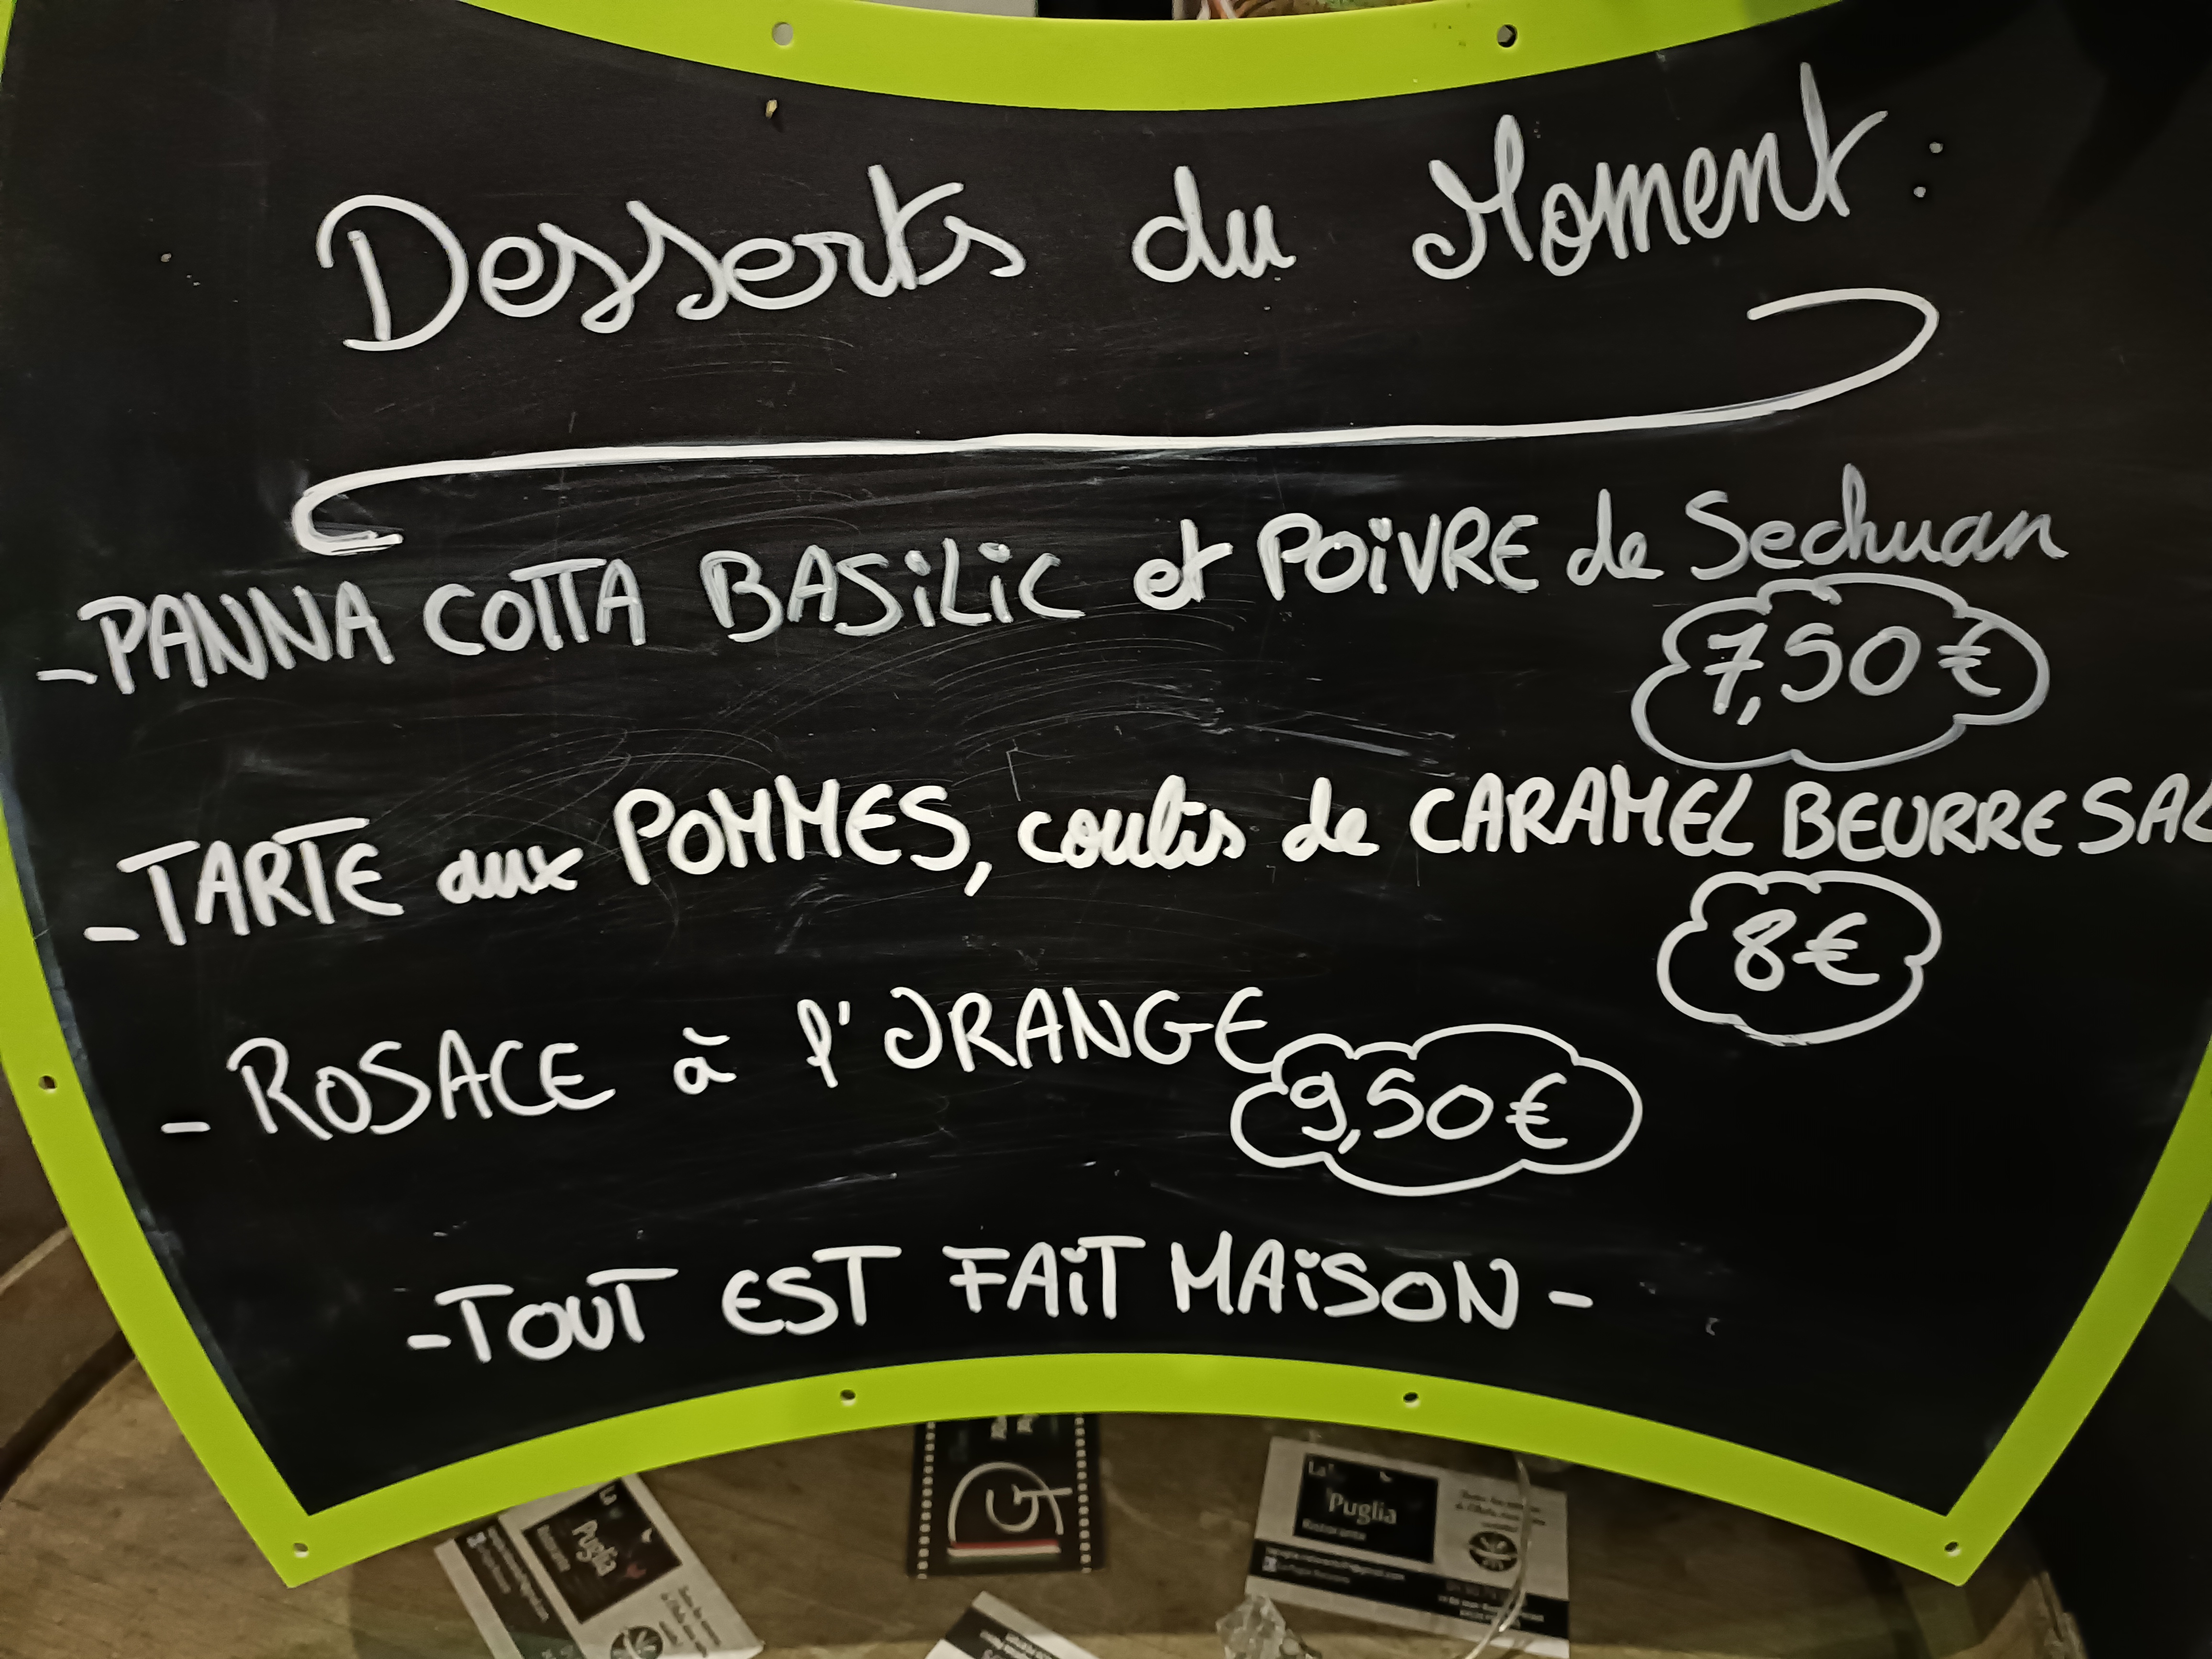 Desserts du Moment :
- PANNA COTTA BASILIC et POIVRE de Sechuan
7,50 €
- TARTE aux POMMES, coulis de CARAMEL BEURRE SAL
8 €
- ROSACE à l'ORANGE
9,50 €
- TOUT EST FAIT MAISON -
G
La
Puglia
Ristorante
Puglia
Ristorante